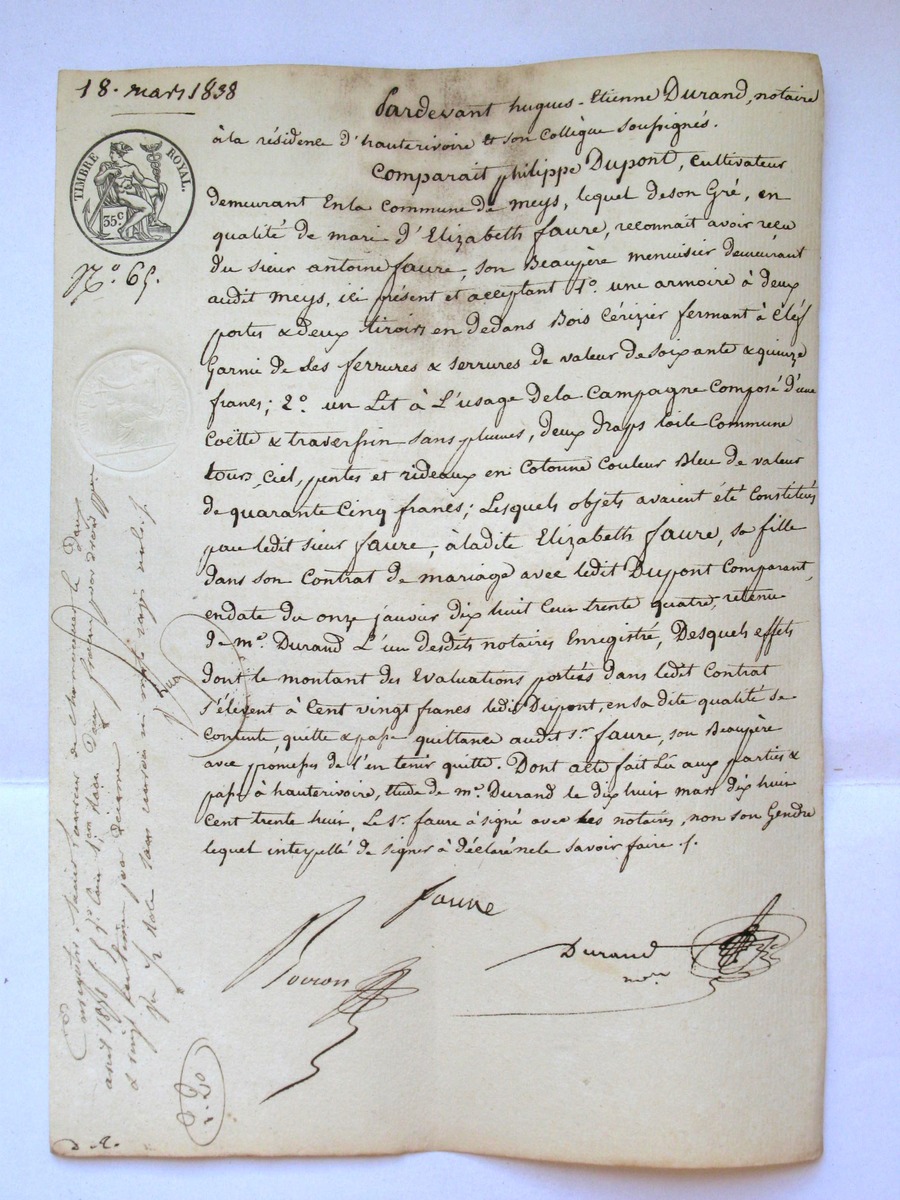 18. mars 1838
TIMBRE ROYAL.
35c
N.º 65.
Pardevant hugues-Etienne Durand, notaire
à la résidence d'hauterivoire & son Collègue soussignés.
Comparait philippe Dupont, Cultivateur
demeurant En la commune de meys, lequel de son Gré, en
qualité de mari d'Elizabeth faure, reconnait avoir reçu
du sieur antoine faure, son Beaupère menuisier demeurant
audit meys, ici présent et acceptant 1.º une armoire à deux
portes & deux tiroirs en dedans Bois Cérizier fermant à Clef
Garnie de ses ferrures & serrures de valeur de soixante & quinze
francs; 2.º un Lit à L'usage de la Campagne Composé d'une
Coëtte & traversin sans plumes, deux draps toile Commune
tour, Ciel, pentes et rideaux en Cotonne Couleur Bleu de valeur
de quarante Cinq francs; Lesquels objets avaient été Constitués
par ledit sieur faure, à ladite Elizabeth faure, sa fille
dans son Contrat de mariage avec ledit Dupont Comparant,
en date du onze janvier dix huit Cent trente quatre, retenu
de me. Durand L'un desdits notaires Enregistré, Desquels effets
dont le montant des Evaluations portées dans ledit Contrat
s'élèvent à Cent vingt francs ledit Dupont, en sa dite qualité se
Contente, quitte & passe quittance audit sr. faure, son Beaupère
avec promesse de l'en tenir quitte. Dont acte fait Lu aux parties &
passé à hauterivoire, étude de me. Durand le dix huit mars dix huit
Cent trente huit, Le sr. faure à signé avec les notaires, non son Gendre
lequel interpellé de signer à déclaré ne le savoir faire /.
faure
Durand
nore
Enregistré à Saint Laurent de Chamousset le Deux
avril 1838